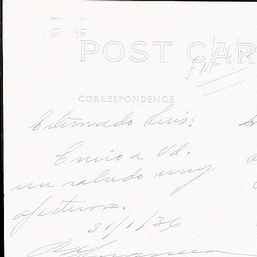 POST CAR
CORRESPONDENCE
Estimado Luis:
Envio a Vd.
un saludo muy
afectuoso.
31/1/36